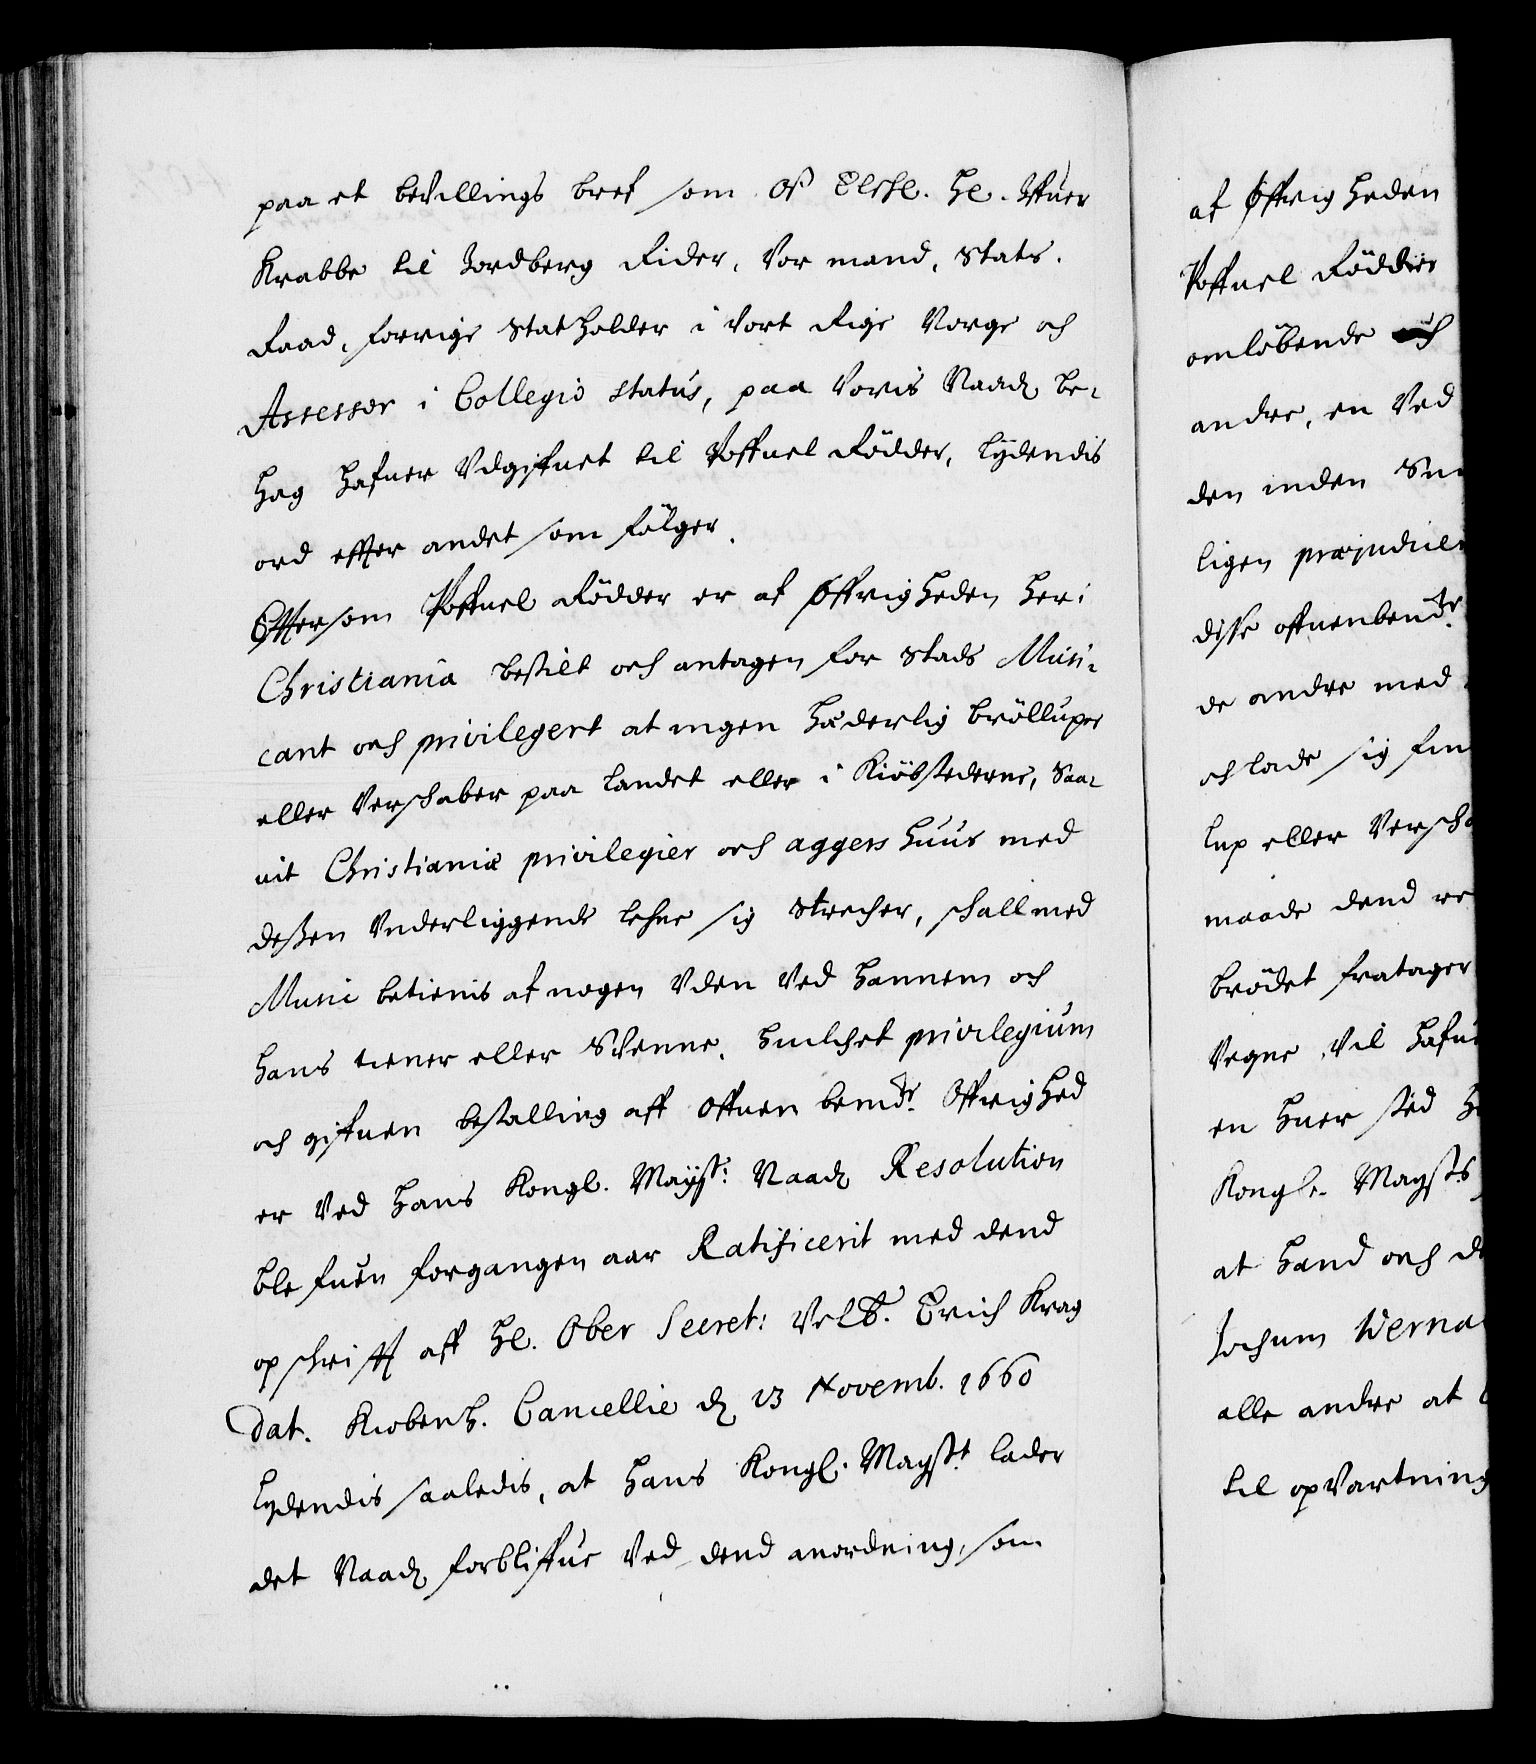 paa et bevillings bref som Oß Elskl. Hl. Iffuer
Krabbe til Jordberg Rider, Vor mand, Stats.
Raad, forrige Statholder i Vort Rige Norge och
Assessor i Collegio status, paa Voris Naadℓ be-
hag hafuer Vdgifuet til Poffuel Rödder, lydendis
ord effter andet som fölger.
Efftersom Poffuel Rödder er af Øffrigheden her i
Christiania bestilt och antagen for Stads Musi-
cant och privilegert at ingen hæderlig brölluper
eller Verschaber paa landet eller i Kiöbstederne, Saa-
uit Christianiæ privilegier och aggers huus med
deßen Vnderliggende lehne sig strecher, schall med
Music betienis af nogen Vden Ved hannem och
hans tiener eller Svenne, huilchet privilegium
och gifuen bestalling aff offuen bemdte Øffrighed
er Ved hans Kongl. Mayst: Naadℓ Resolution
blefuen forgangen aar Ratificerit med dend
opschrifft aff Hl. Ober Secret: Velb. Erich Krag
dat. Kiobenh. Cancellie dℓ 13 Novemb. 1660
lydendis saaledis, at hans Kongl. Mayst lader
det Naadℓ forbliffue Ved dend anordning, som
af Øffrigheden
Poffuel Rödder
omløbende och
andre, en Ved
den inden
ligen præjudice
disse offuenbemdte
de andre med
och lade sig
lup eller Versch
maade dend
brödet fratager
Vegne, Vil hafu
en huer sted
Kongl. Maysts
at hand och
Jochum Werna
alle andre at
til opVartning